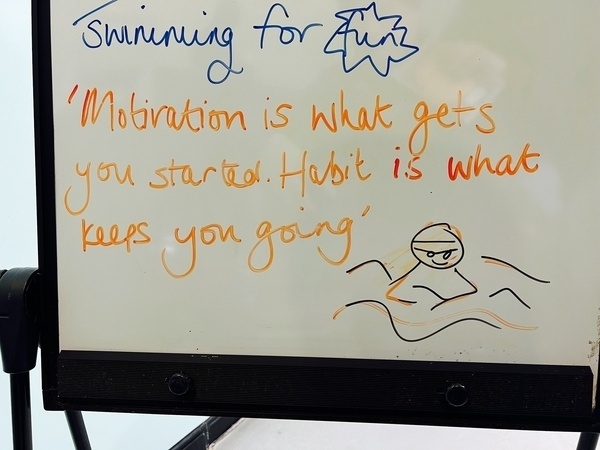 Swimming for fun
'Motivation is what gets
you started. Habit is what
keeps you going'